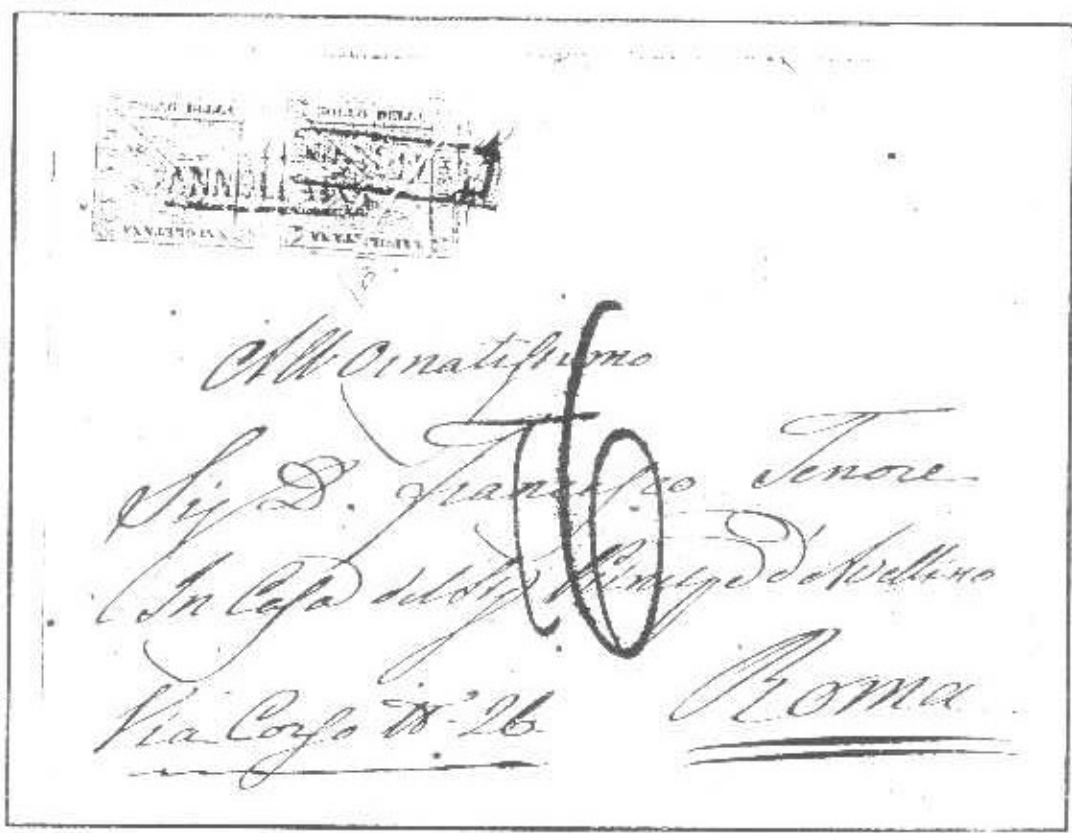 BOLLO DELLA BOLLO DELLA
ANNULLATO
NAPOLETANA NAPOLETANA
All Ornatissimo
Sig. D. Francesco Tenore
In Casa del Sig. Principe d'Avellino
Via Corso N° 26
Roma
6